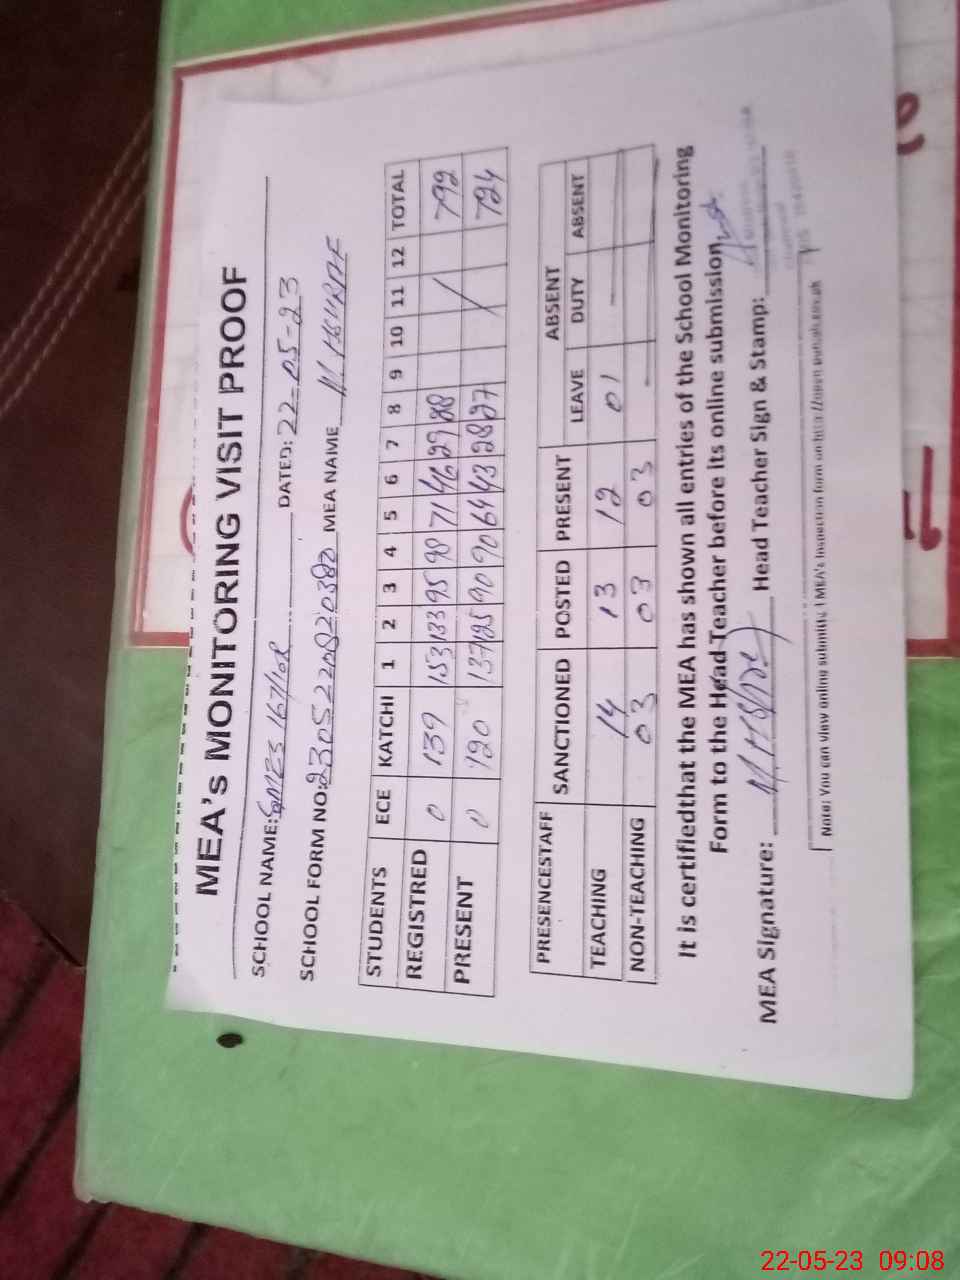 MEA's MONITORING VISIT PROOF
SCHOOL NAME: GMES 167/10R DATED: 22-05-23
SCHOOL FORM NO: MEA NAME M.
STUDENTS ECE KATCHI 1 2 3 4 5 6 7 8 9 10 11 12 TOTAL
REGISTRED 0 139 153 133 95 98 71 46 29 28 792
PRESENT 0 120 137 125 90 90 64 43 28 27 724
PRESENCESTAFF SANCTIONED POSTED PRESENT ABSENT
LEAVE DUTY ABSENT
TEACHING 14 13 12 01
NON-TEACHING 03 03 03
It is certifiedthat the MEA has shown all entries of the School Monitoring
Form to the Head Teacher before its online submission.
MEA Signature: Head Teacher Sign & Stamp:
Note: You can view online submitted MEA's Inspection form on http://open.punjab.gov.pk
22-05-23 09:08